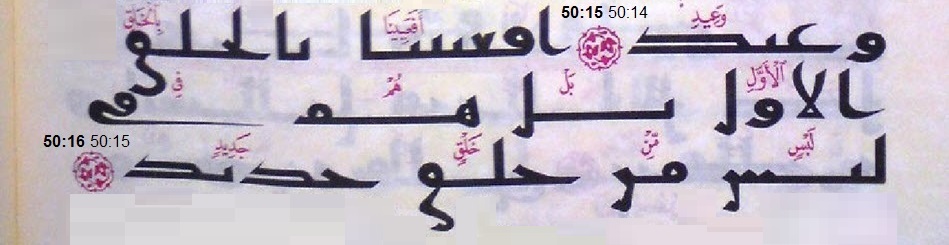 50:15 50:14
وَعِيدِ أَفَعَيِينَا بِالْخَلْقِ
وعيد افعيينا بالخلق
الْأَوَّلِ بَلْ هُمْ فِي
الاول بل هم في
50:16 50:15
لَبْسٍ مِّنْ خَلْقٍ جَدِيدٍ
لبس من خلق جديد